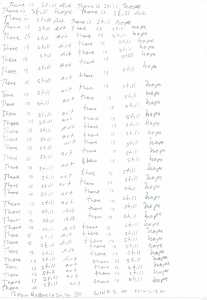 There is still Art There is still hope
There is still hope There is still Art
There is still Art there is still hope
There is still art there is still hope
There is still Art there is still hope
There is still Art there is still hope
There is still Art there is still hope
There is still Art there is still hope
There is still Art there is still hope
There is still Art there
There is still Art there is still hope
There is still Art there is still hope
There is still Art there is still hope
There is still art there is still hope
There is still art there is still hope
There is still art there is still hope
There is still art there is still hope
There is still art there is still hope
There is still art there is still hope
There is still art there is still hope
There is still art there is still hope
There is still art there is still hope
There is still art there is still hope
There is still art there is still hope
There is still art there is still hope
There is still Art there is still hope
There is still Art there is still hope
There is still Art there is still hope
There is still Art there is still hope
There is still Art there is still hope
There is still art there is still hope
There is still art there is still hope
Lines